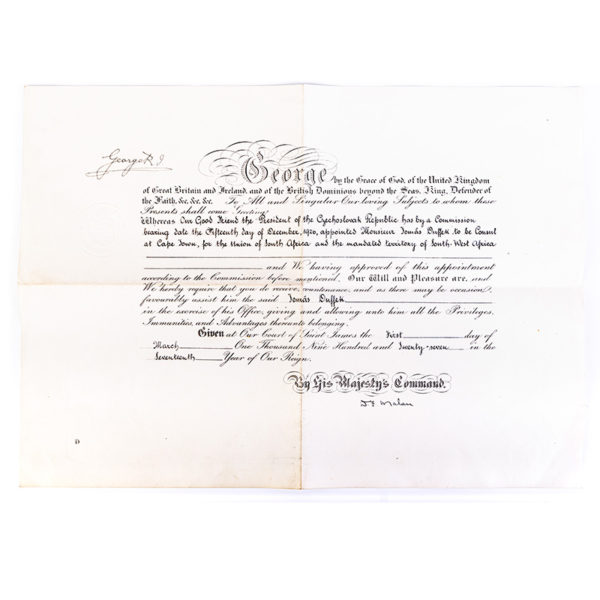 George R I
George by the Grace of God, of the United Kingdom
of Great Britain and Ireland, and of the British Dominions beyond the Seas, King, Defender of
the Faith, &c. &c. &c. To All and Singular Our loving Subjects to whom these
Presents shall come Greeting!
Whereas Our Good Friend the President of the Czechoslovak Republic has by a Commission
bearing date the Fifteenth day of December, 1926, appointed Monsieur Tomás Duffek to be Consul
at Cape Town, for the Union of South Africa and the mandated territory of South West Africa
and We having approved of this appointment
according to the Commission before mentioned, Our Will and Pleasure are, and
We hereby require that you do receive, countenance, and as there may be occasion,
favourably assist him the said Tomás Duffek
in the exercise of his Office, giving and allowing unto him all the Privileges,
Immunities, and Advantages thereunto belonging.
Given at Our Court of Saint James the First day of
March One Thousand Nine Hundred and Twenty-seven in the
Seventeenth Year of Our Reign.
By His Majesty's Command.
D F Malan